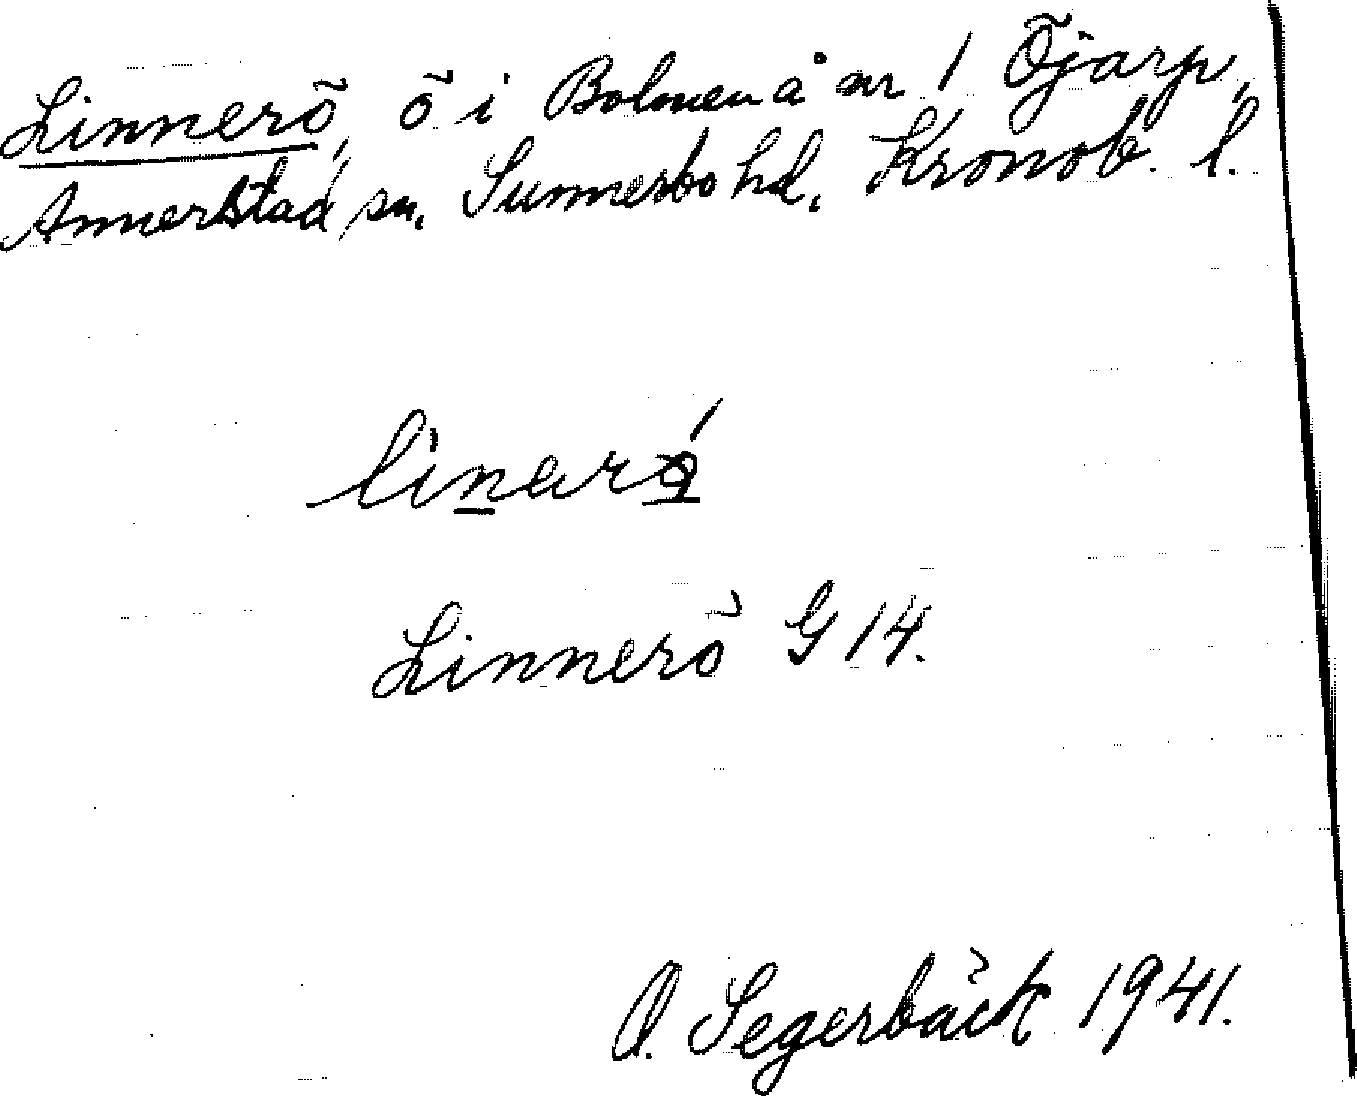 Linnerö, ö i Bolmen å nr 1 Öjarp,
Annerstad sn, Sunnerbo hd, Kronob. l.
Linnerö G 14.
O. Segerbäck 1941.